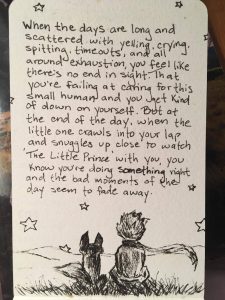 When the days are long and
scattered with yelling, crying,
spitting, timeouts, and all
around exhaustion, you feel like
there's no end in sight. That
you're failing at caring for this
small human and you get kind
of down on yourself. But at
the end of the day, when the
little one crawls into your lap
and snuggles up close to watch
'The Little Prince' with you, you
know you're doing something right
and the bad moments of the
day seem to fade away.